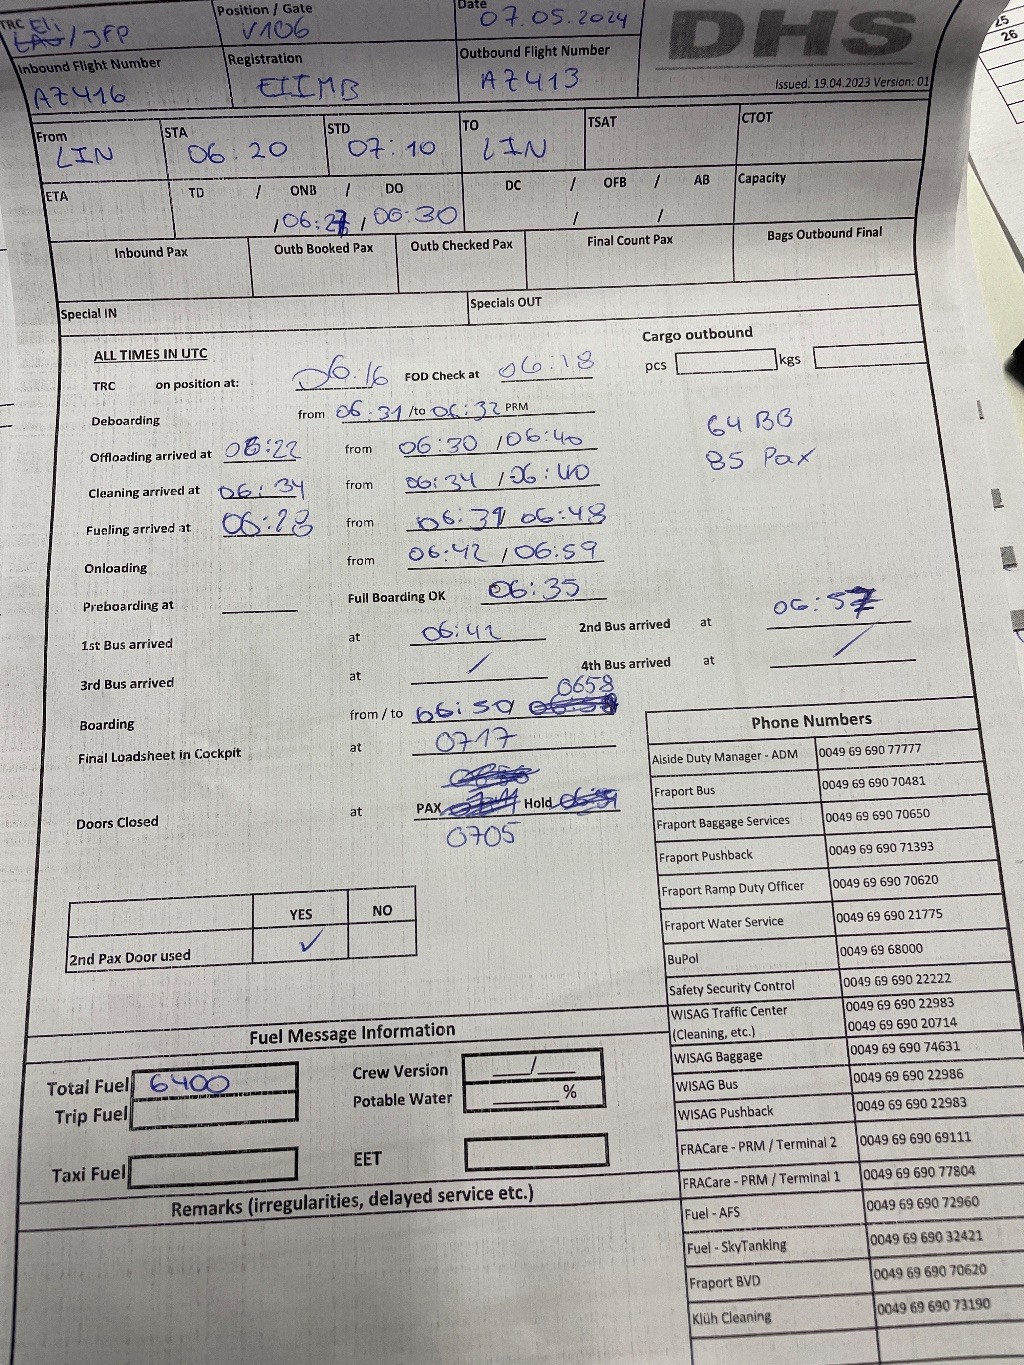 TRC Eli Position / Gate Date 07.05.2024 DHS
/JFP V106
Inbound Flight Number Registration Outbound Flight Number
AZ416 EIIMB AZ413 Issued: 19.04.2023 Version: 01
From STA STD TO TSAT CTOT
LIN 06:20 07:10 LIN
ETA TD / ONB / DO DC / OFB / AB Capacity
/06:27 / 06:30 / /
Inbound Pax Outb Booked Pax Outb Checked Pax Final Count Pax Bags Outbound Final
Special IN Specials OUT
ALL TIMES IN UTC Cargo outbound
TRC on position at: 06:16 FOD Check at 06:18 pcs kgs
Deboarding from 06:31 /to 06:32 PRM
64 BB
Offloading arrived at 06:22 from 06:30 / 06:40
85 Pax
Cleaning arrived at 06:34 from 06:34 / 06:40
Fueling arrived at 06:28 from 06:39 06:48
Onloading from 06:42 / 06:59
Preboarding at Full Boarding OK 06:35
1st Bus arrived at 06:42 2nd Bus arrived at 06:57
3rd Bus arrived at / 4th Bus arrived at /
0658
Boarding from / to 06:50/
Final Loadsheet in Cockpit at 0717
Doors Closed at PAX Hold
0705
YES NO
2nd Pax Door used ✓
Phone Numbers
Aiside Duty Manager - ADM 0049 69 690 77777
Fraport Bus 0049 69 690 70481
Fraport Baggage Services 0049 69 690 70650
Fraport Pushback 0049 69 690 71393
Fraport Ramp Duty Officer 0049 69 690 70620
Fraport Water Service 0049 69 690 21775
BuPol 0049 69 68000
Safety Security Control 0049 69 690 22222
WISAG Traffic Center 0049 69 690 22983
(Cleaning, etc.) 0049 69 690 20714
WISAG Baggage 0049 69 690 74631
WISAG Bus 0049 69 690 22986
WISAG Pushback 0049 69 690 22983
FRACare - PRM / Terminal 2 0049 69 690 69111
FRACare - PRM / Terminal 1 0049 69 690 77804
Fuel - AFS 0049 69 690 72960
Fuel - SkyTanking 0049 69 690 32421
Fraport BVD 0049 69 690 70620
Klüh Cleaning 0049 69 690 73190
Fuel Message Information
Total Fuel 6400 Crew Version /
Trip Fuel Potable Water %
Taxi Fuel EET
Remarks (irregularities, delayed service etc.)
25
26